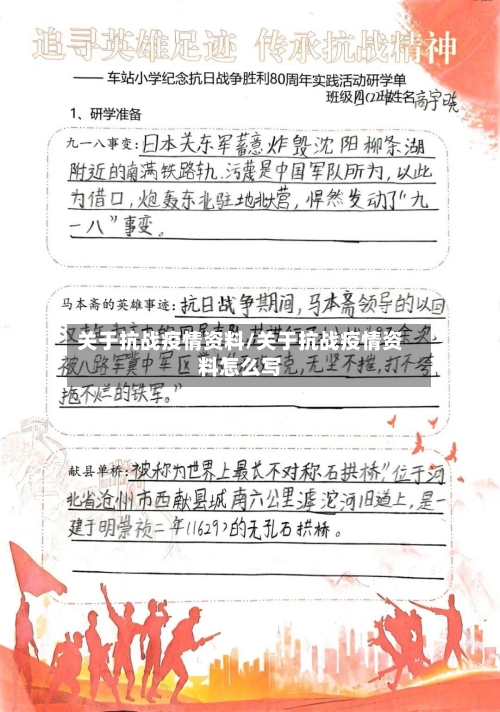 追寻英雄足迹 传承抗战精神
—— 车站小学纪念抗日战争胜利80周年实践活动研学单
班级四(22)班姓名高宇晓
1、研学准备
九一八事变：日本关东军蓄意炸毁沈阳柳条湖
附近的南满铁路轨，污蔑是中国军队所为，以此
为借口，炮轰东北驻地北大营，悍然发动了“九
一八”事变。
马本斋的英雄事迹：抗日战争期间，马本斋领导的以回
关于抗战疫情资料/关于抗战疫情资
料怎么写
被八路军冀中军区 克，无坚不摧，打不垮，
拖不烂的铁军。”
献县单桥：被称为世界上最长不对称石拱桥，”位于河
北省沧州市西献县城南六公里滹沱河旧道上，是一
建于明崇祯二年(1629)的无孔石拱桥。